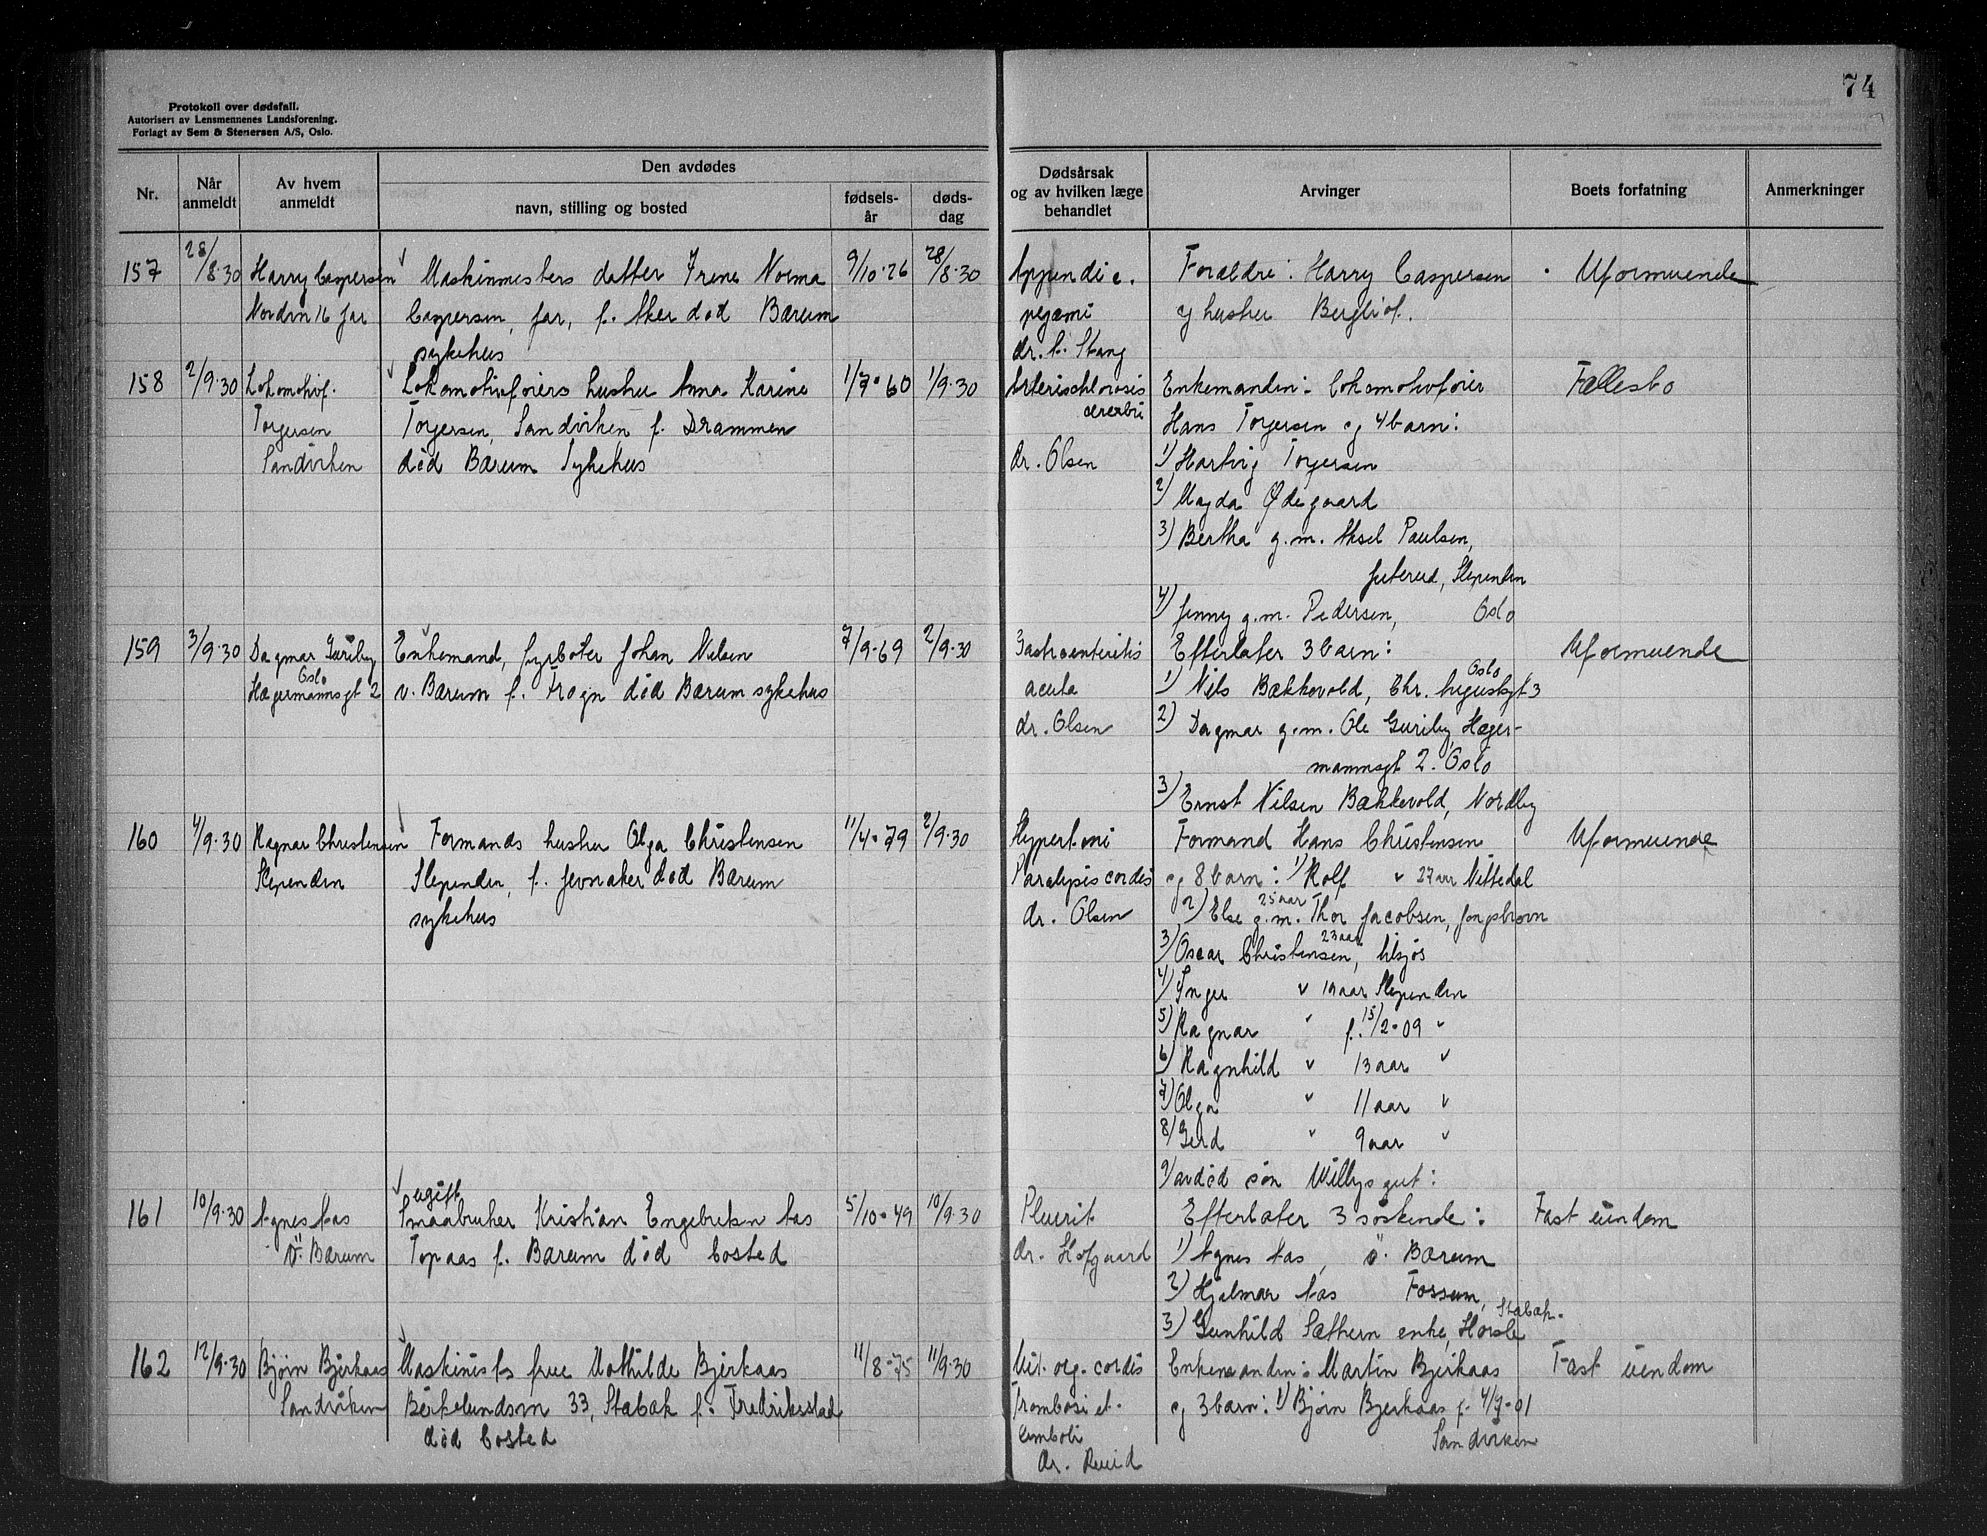 74
Protokoll over dødsfall.
Autorisert av Lensmennenes Landsforening.
Forlagt av Sem & Stenersen A/S, Oslo.
Nr.
Når anmeldt
Av hvem anmeldt
Den avdødes
navn, stilling og bosted
fødsels-år
døds-dag
Dødsårsak og av hvilken læge behandlet
Arvinger
Boets forfatning
Anmerkninger
157 28/8.30 Harry Caspersen Maskinmesters datter Irene Norma 9/10.26 28/8.30 Appendic. Forældre: Harry Caspersen Uformuende
Caspersen, Jar, f. Aker død Bærum og hustru Bergliot.
sykehus dr. A. Stang
158 2/9.30 Lokomotivf. Lokomotivføiers hustru Anna Karine 1/7.60 1/9.30 Arterischlorosis Enkemanden: Lokomotivføier Fællesbo
cerebri
Torgersen Torgersen, Sandviken f. Drammen Hans Torgersen og 4 barn:
Sandviken død Bærum Sykehus dr. Olsen 1) Hartvig Torgersen
2) Magda Ødegaard
3) Bertha g.m. Aksel Paulsen,
Slependen
4) Jenny g.m. Pedersen, Oslo
159 3/9.30 Dagmar Guriby Enkemand, fyrbøter Johan Nilsen 7/9.69 2/9.30 Gastroenteritis Efterlater 3 barn: Uformuende
Oslo Oslo
Hægermannsgt 2 v. Bærum f. Frogn død Bærum sykehus acuta 1) Nils Bækkevold, Chr. Augustsgt 3
dr. Olsen 2) Dagmar g.m. Ole Guriby, Hæger-
mannsgt 2. Oslo
3) Ernst Nilsen Bækkevold, Nordby
160 4/9.30 Ragnar Christensen Formands hustru Olga Christensen 11/4.79 2/9.30 Hypertoni Formand Hans Christensen Uformuende
Slependen Slependen, f. Jevnaker død Bærum Paralysis cordis og 8 barn: 1) Rolf " 27 aar Nittedal
25 aar
sykehus dr. Olsen 2) Else g.m. Thor Jacobsen, Jongsbroen
23 aar
3) Oscar Christensen,
4) Inger " 19 aar Slependen
5) Ragnar " f. 15/2.09 "
6) Ragnhild " 13 aar "
7) Olga " 11 aar "
8) Gerd " 9 aar "
9) avdød søn Willys gut:
ugift
161 10/9.30 Agnes Aas Smaabruker Kristian Engebriksen Aas 5/10.49 10/9.30 Pleurit Efterlater 3 søskende: Fast eiendom
Ø. Bærum Topaas f. Bærum død bosted dr. Hofgaard 1) Agnes Aas, Ø. Bærum
2) Hjalmar Aas Fossum,
Stabæk.
3) Gunhild Sæthern enke, Hosle
162 12/9.30 Bjørn Bjerkaas Maskinists frue Mathilde Bjerkaas 11/8.75 11/9.30 Vit. org. cordis Enkemanden: Martin Bjerkaas Fast eiendom
Sandviken Birkelundsvn 33, Stabæk f. Fredriksstad Trombosi et. og 3 barn: 1) Bjørn Bjerkaas f. 4/7.01
død bosted emboli Sandviken
dr. Ruud